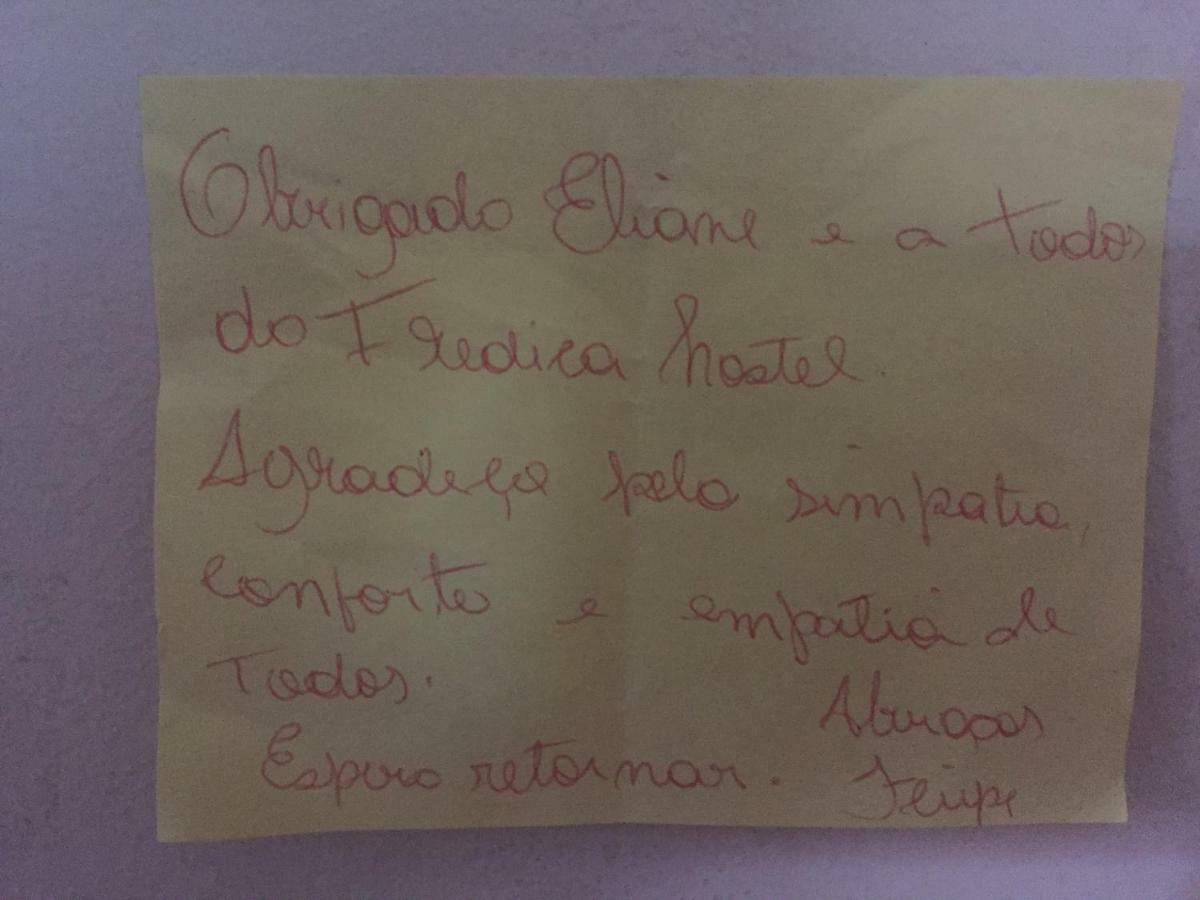 Obrigado Eliane e a todos
do Fredica hostel.
Agradeço pela simpatia,
conforto e empatia de
Todos.
Abraços
Espero retornar. Felipe